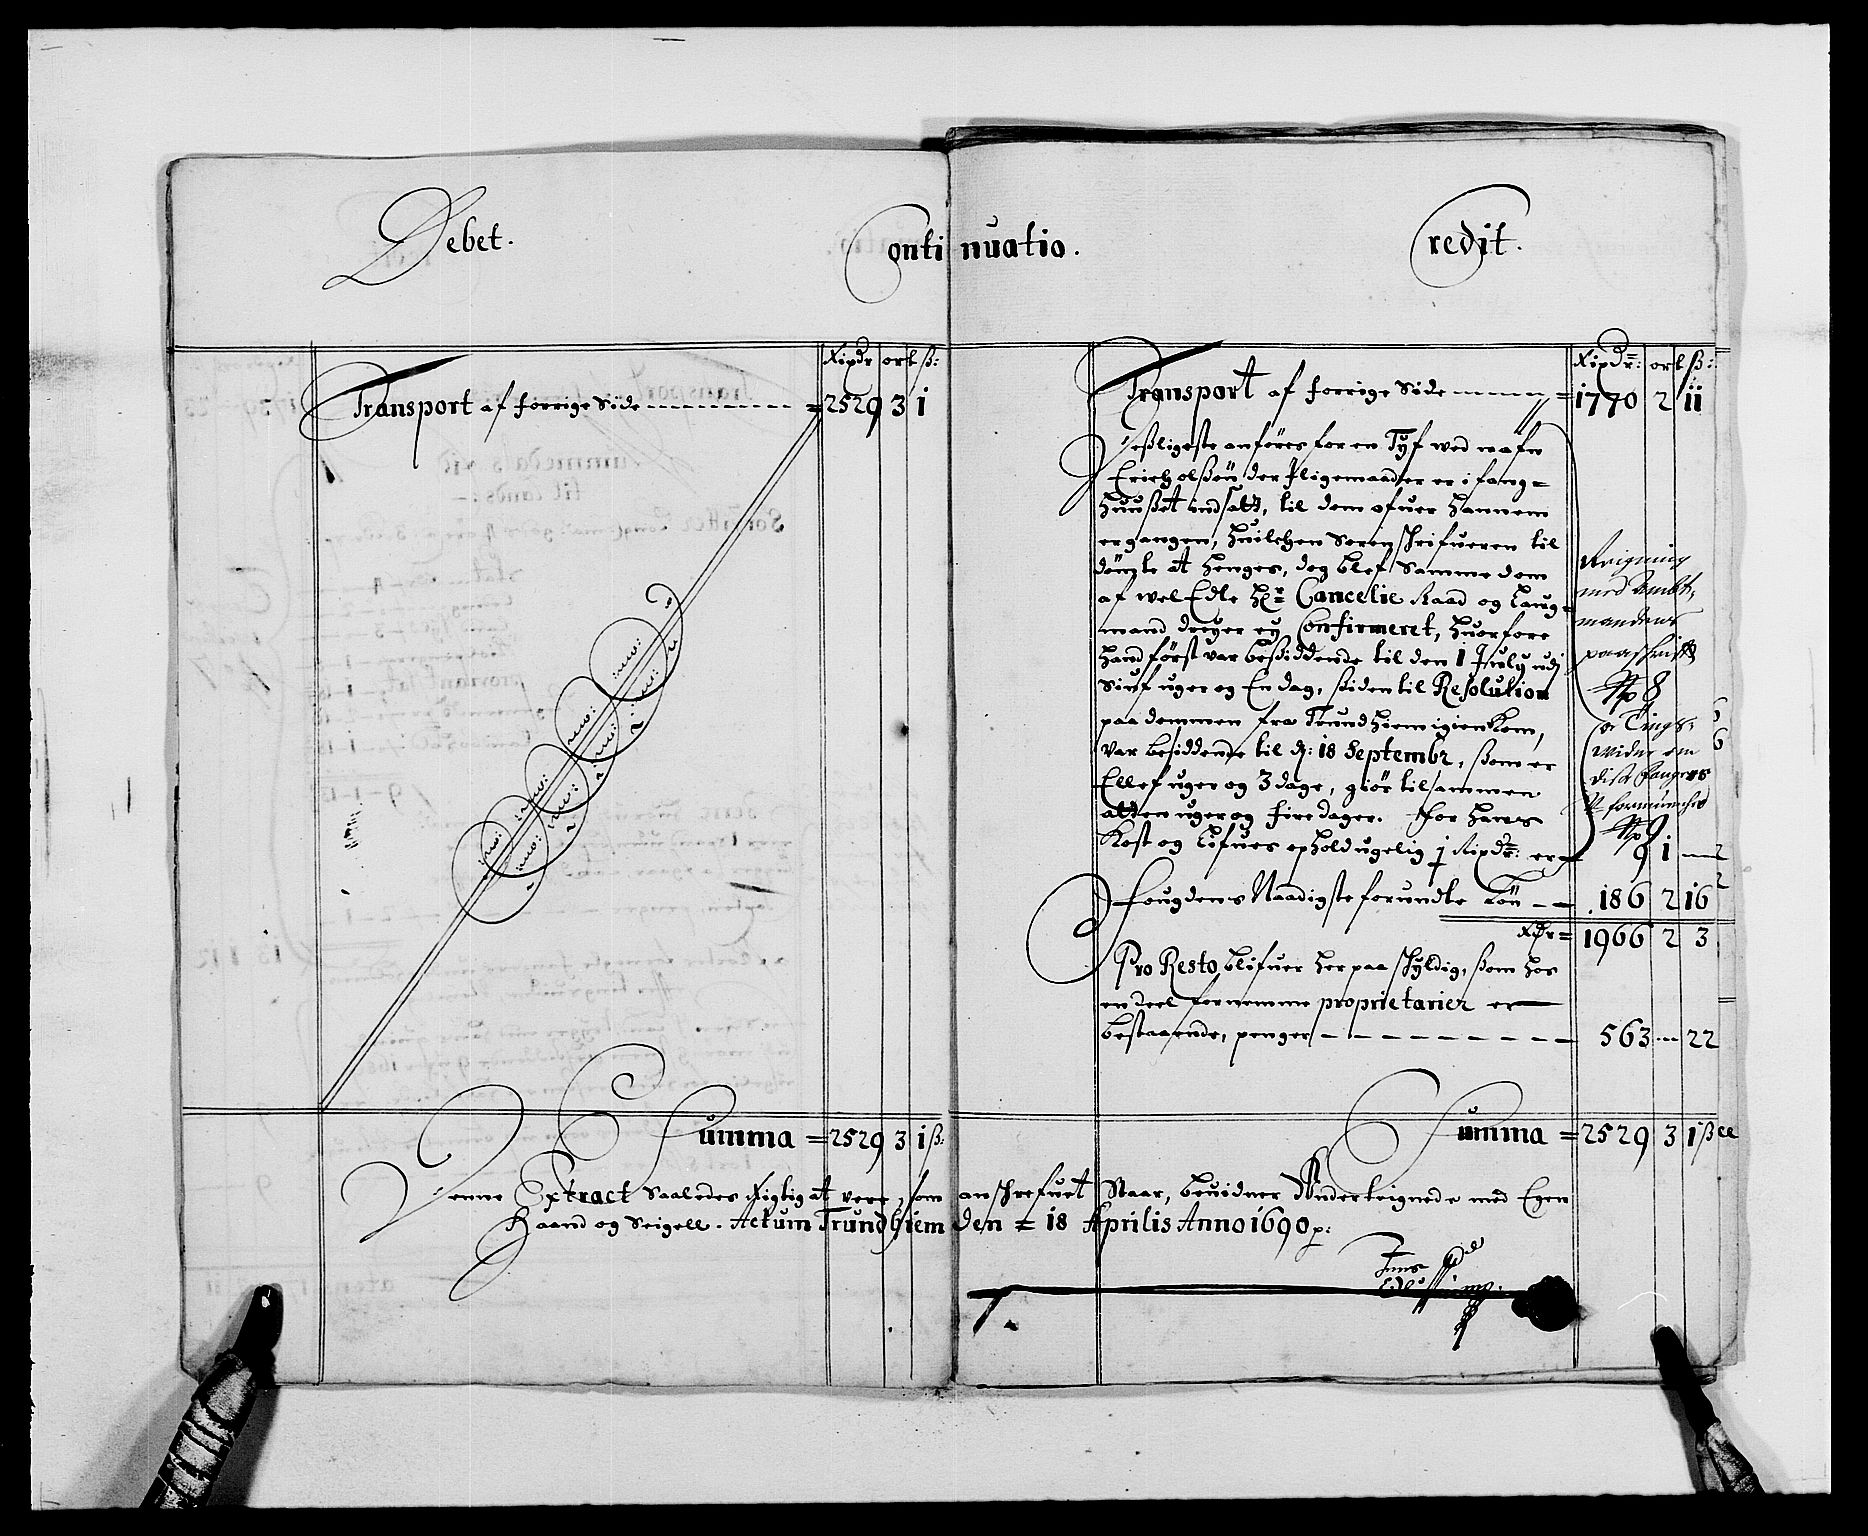 Debet.
Continuatio.
Credit.
Rixdr ort ß:
Transport af forrige Side = 2529 3 1
Summa = 2529 3 1 ß:
Rixdr: ort ß:
Transport af forrige Side = 1770 2 11
Desligeste anföres for en Tyf ved nafn
Erich Olßön der Pligemaader er i fang=
huußet indsatt, til dom ofuer hannem
ergangen, huilchen Sorenschrifueren til
dömte at henges, dog blef Samme dom
af wel Edle Hr Cancelie Raad og Laug=
mand Dreyer ey Confirmeret, huorfore
hand först var beßiddende til den 1 July udj
Siuf uger og En dag, ßiden til Resolution
paa dommen fra Trundhiem igien Kom,
var besiddende til d: 18 Septembr, ßom er
Ellef uger og 3 dage, giör tilsammen
atten uger og fire dager. for hans
Kost og Lifues ophold ugelig 1 Rixdr: er 9 1 —
Reigning
med Ambt,
mandens
paaschrift
No 8
og Tings=
widne om
disse fanger
No 9
fougdens Naadigste forundte Lön — 186 2 16
Rdr = 1966 2 3
Pro Resto blifuer her paa schyldig, ßom hos
en deel fornemme proprietarier er
bestaaende, penger — 563 — 22
Summa = 2529 3 1 ß
Denne Extract Saaledes Rigtig at vere, som anschrefuet Staar, beuidner Underteignede med Egen
Haand og Seigell. Actum Trundhiem den = 18 Aprilis Anno 1690 p: